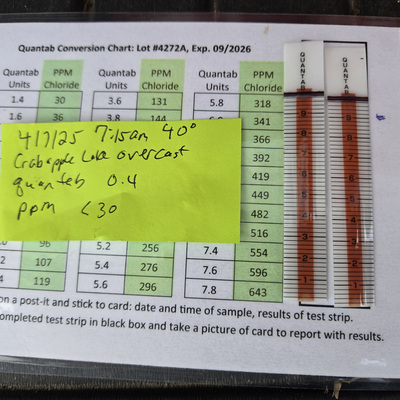 Quantab Conversion Chart: Lot #4272A, Exp. 09/2026
Quantab PPM Quantab PPM Quantab PPM
Units Chloride Units Chloride Units Chloride
1.4 30 3.6 131 5.8 318
1.6 36 3.8 144 341
366
392
419
449
482
516
96 5.2 256 7.4 554
107 5.4 276 7.6 596
119 5.6 296 7.8 643
4/7/25 7:15am 40°
Crabapple Lake overcast
quantab 0.4
ppm <30
on a post-it and stick to card: date and time of sample, results of test strip.
ompleted test strip in black box and take a picture of card to report with results.
QUANTAB
9
8
7
6
5
4
3
2
1
QUANTAB
9
8
7
6
5
4
3
2
1